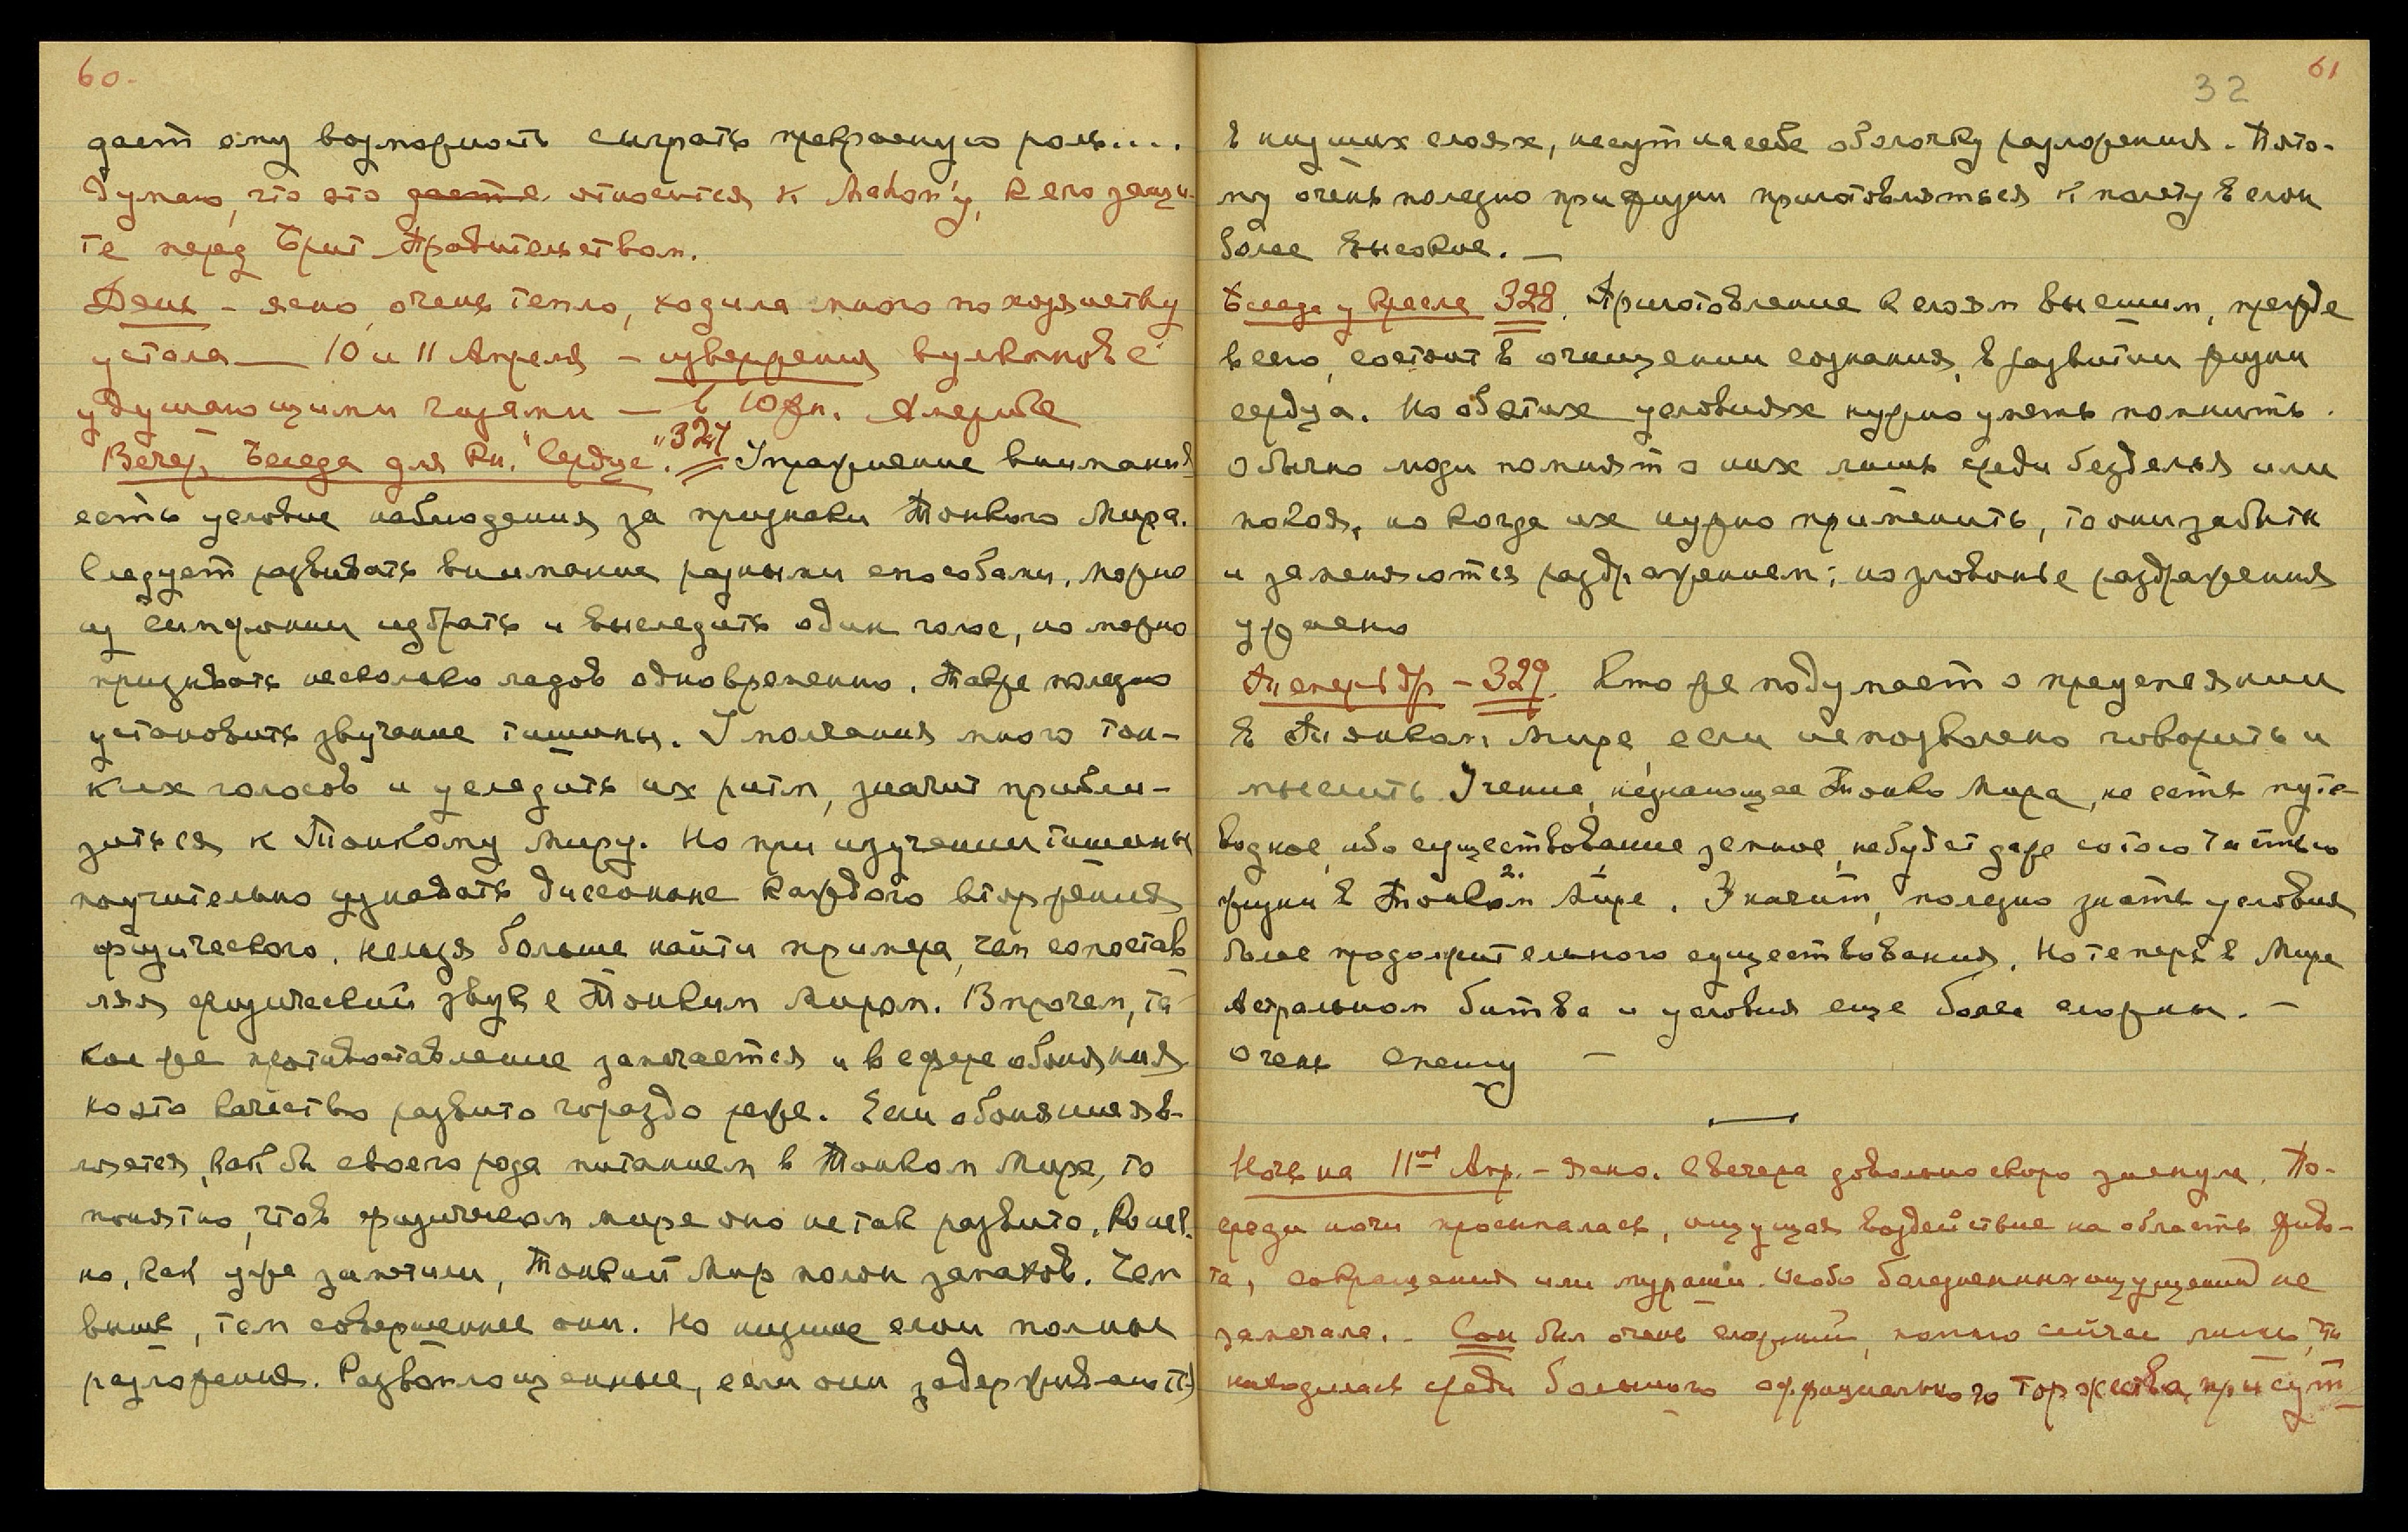 60.
дает ему возможность сыграть прекрасную роль....
Думаю, что это дается относится к Mahon'у, к его защи-
те перед Брит Правительством.
День – ясно, очень тепло, ходила много по хозяйству
устала — 10 и 11 Апреля – извержения вулканов с
удушающими газами — в Южн. Америке
Вечер, Беседа для Кн. "Сердце". 327 Упражнение внимания
есть условие наблюдения за признаки Тонкого Мира.
Следует развивать внимание разными способами, можно
из симфонии избрать и выследить один голос, но можно
признавать несколько ладов одновременно. Также полезно
установить звучание тишины. Умолчания много тон-
ких голосов и уследить их ритм, значит прибли-
зиться к Тонкому Миру. Но при изучении тишины
поучительно узнавать диссонанс каждого вторжения
физического. Нельзя больше найти примера, чем сопостав
ляя физический звук с Тонким Миром. Впрочем, та-
кое же противоставление замечается и в сфере обоняния
но это качество развито гораздо реже. Если обоняние яв-
ляется, как бы своего рода питанием в Тонком Мире, то
понятно, что в физическом мире оно не так развито. Конеч.
но, как уже заметили, Тонкий Мир полон запахов. Чем
выше, тем совершеннее они. Но низшие слои полны
разложения. Развоплощенные, если они задерживаются
32 61
в низших слоях, несут на себе оболочку разложения. Пото-
му очень полезно при жизни приготовляться к полету в слои
более высокие. —
Беседа у Кресла 328. Приготовление к слоям высшим, прежде
всего, состоит в очищении сознания, в развитии жизни
сердца. Но об этих условиях нужно уметь помнить.
Обычно люди помнят о них лишь среди безделья или
покоя, но когда их нужно применить, то они забыты
и заменяются раздражением; но зловонье раздражения
ужасно
328. Теперь др – 329. Кто же подумает о преуспеянии
в Тонком Мире, если не позволено говорить и
мыслить. Учение, не знающее Тонко Мира, не есть путе-
водное, ибо существование земное, не будет даже со той частью
жизни в Тонком Мире. Значит, полезно знать условия
более продолжительного существования. Но теперь в Мире
Астральном битва и условия еще более сложны. –
Очень спешу –
Ночь на 11ое Апр. – Ясно. С вечера довольно скоро заснула. По-
среди ночи просыпалась, ощущая воздействие на область живо-
та, сокращения или мураши. Особо болезненных ощущений не
замечала. – Сон был очень сложный, помню сейчас лишь, что
находилась среди большого оффициального торжества, присут